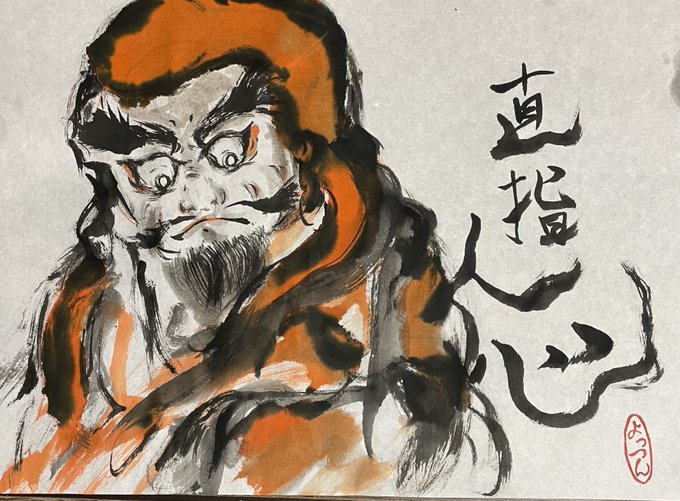 直指人心
よっつん